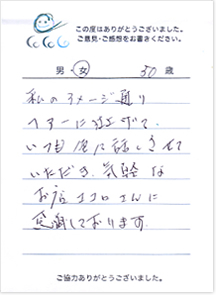 この度はありがとうございました。
ご意見・ご感想をお書きください。
CoCoLo
男・女 50歳
私のイメージ通り
ヘアーに仕上げて、
いつも楽に話しさせて
いただき、気軽な
お店ココロさんに
感謝しております。
ご協力ありがとうございました。